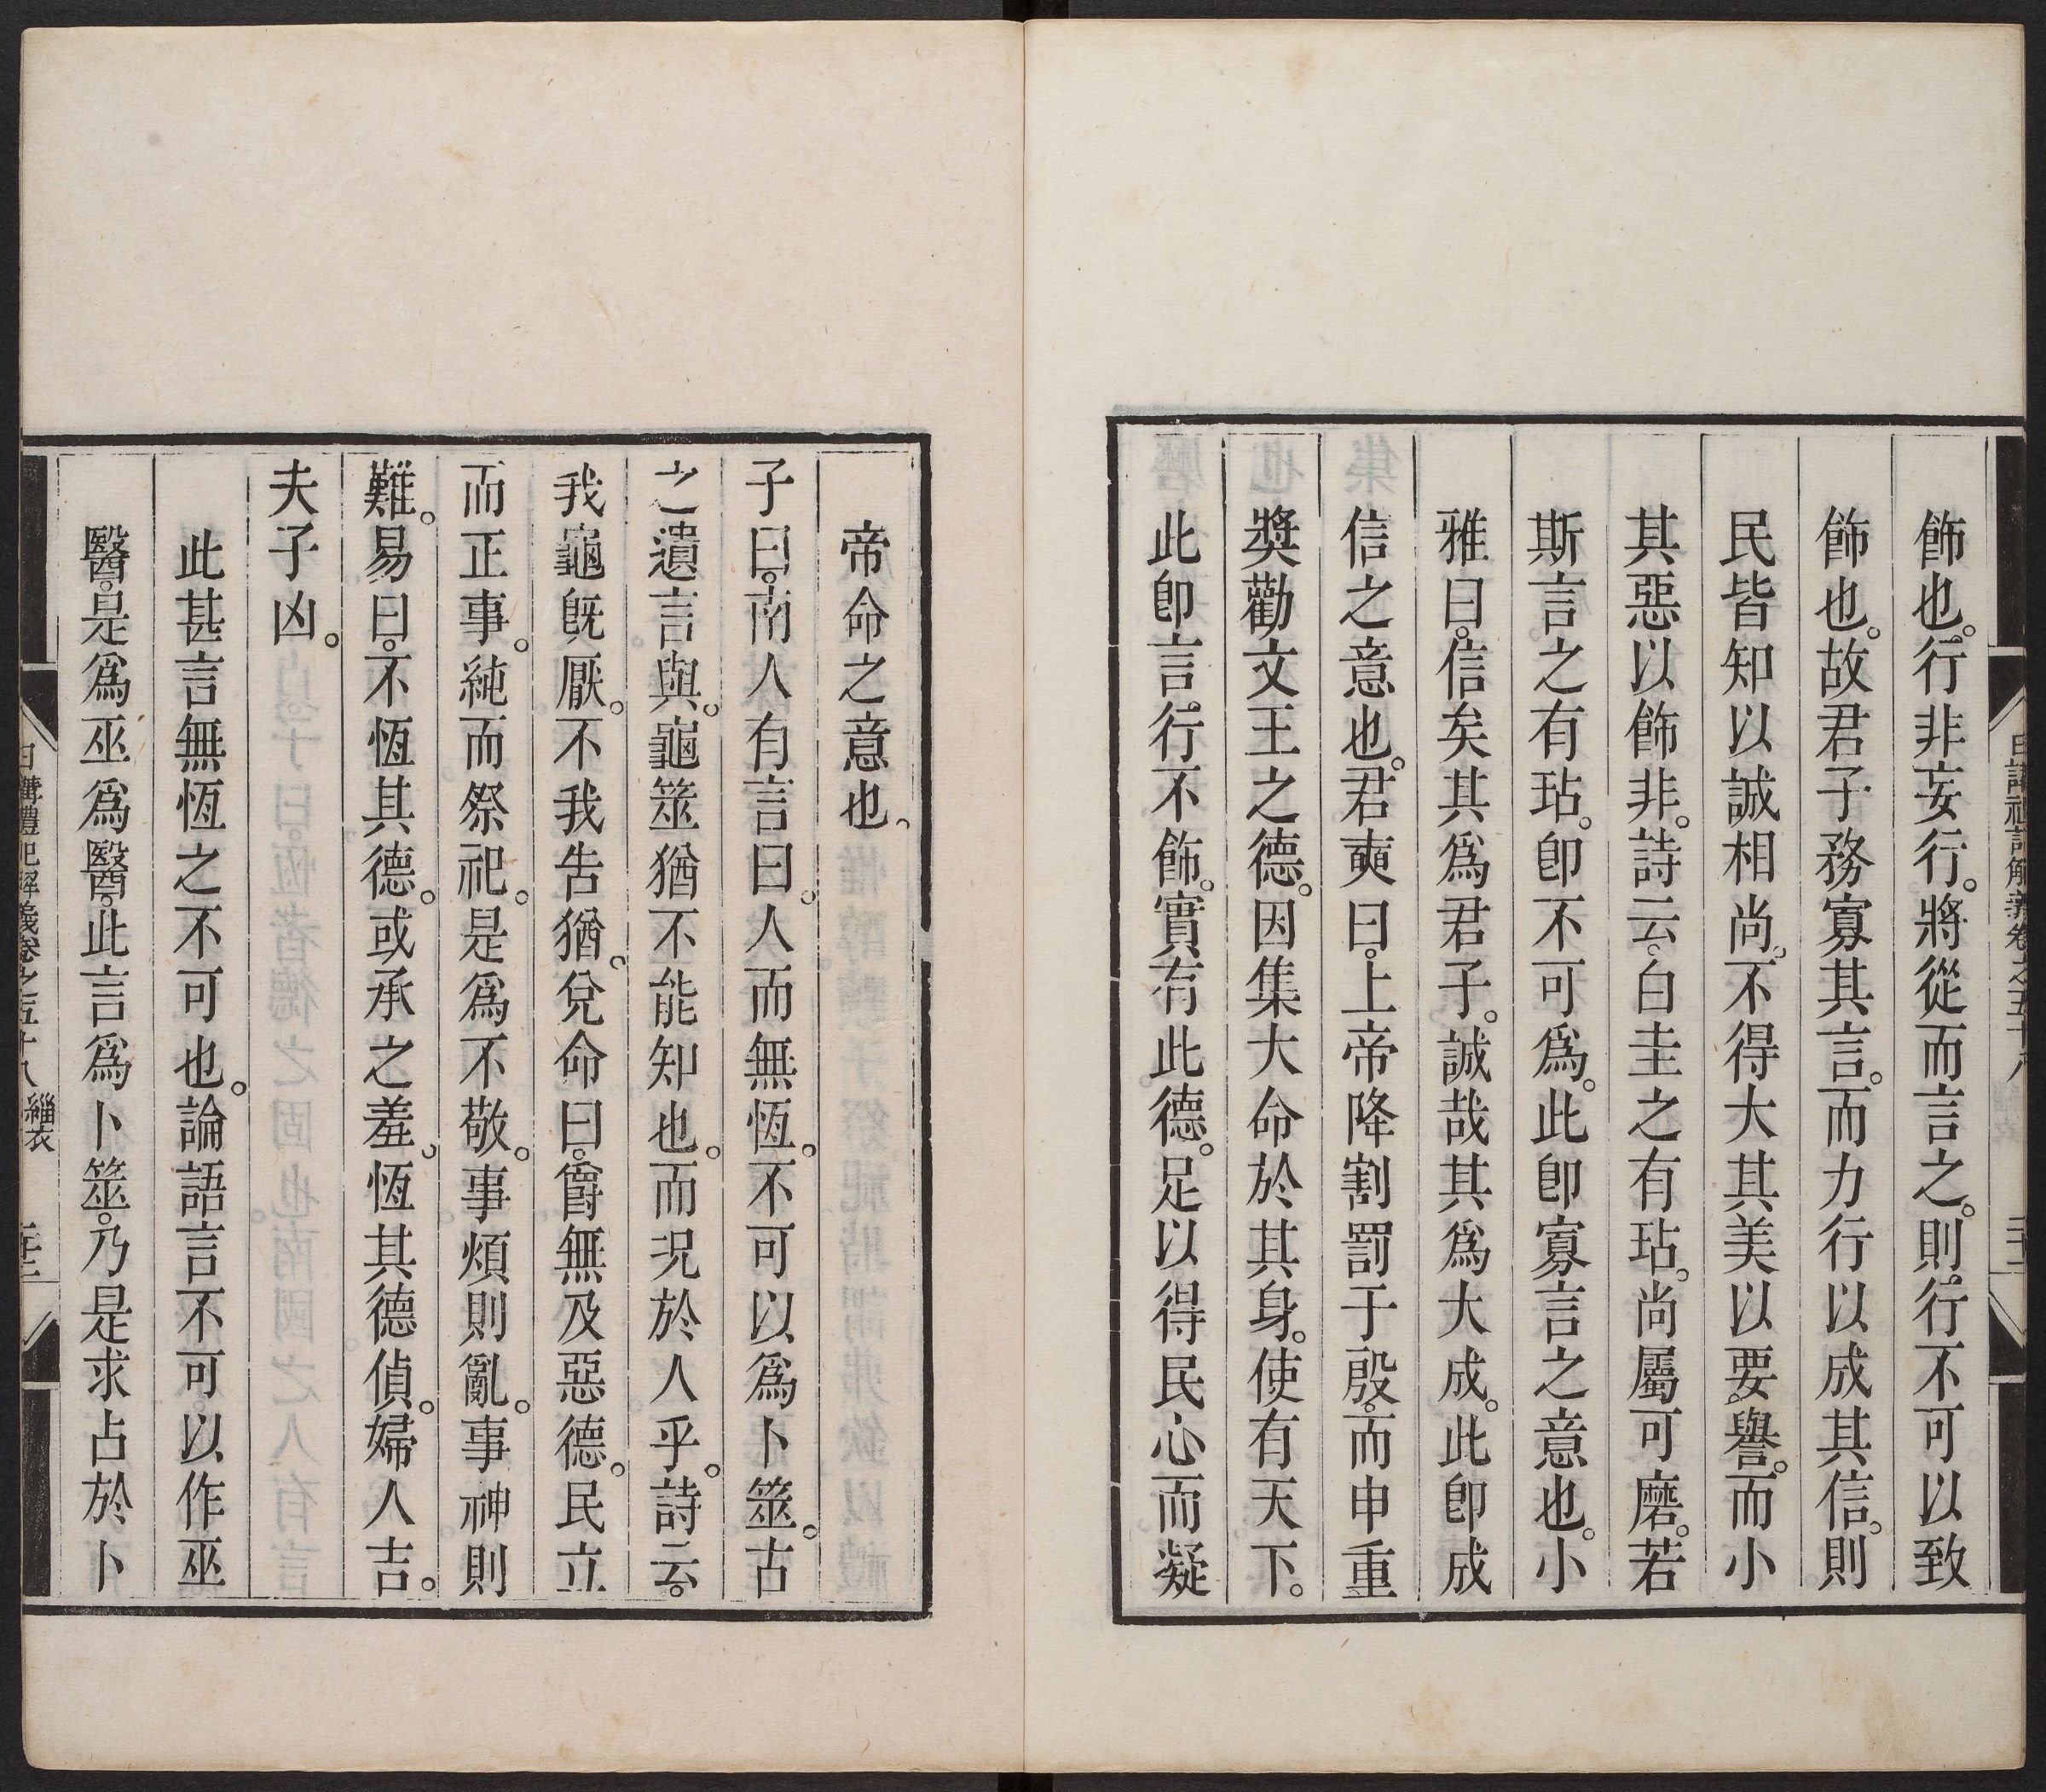 飾也。行非妄行。將從而言之。則行不可以致
飾也。故君子務寡其言。而力行以成其信。則
民皆知以誠相尚。不得大其美以要譽。而小
其惡以飾非。詩云。白圭之有玷。尚屬可磨。若
斯言之有玷。卽不可爲。此卽寡言之意也。小
雅曰。信矣其爲君子。誠哉其爲大成。此卽成
信之意也。君奭曰。上帝降割罰于殷。而申重
奬勸文王之德。因集大命於其身。使有天下。
此卽言。行不飾。實有此德。足以得民心而凝
日講禮記解義卷之五十八
帝命之意也。
子曰。南人有言曰。人而無恆。不可以爲卜筮。古
之遺言與。龜筮猶不能知也。而況於人乎。詩云。
我龜旣厭。不我告猶。兌命曰。爵無及惡德。民立
而正事。純而祭祀。是爲不敬。事煩則亂。事神則
難。易曰。不恆其德。或承之羞。恆其德偵。婦人吉。
夫子凶。
此甚言無恆之不可也。論語言不可以作巫
醫。是爲巫爲醫。此言爲卜筮。乃是求占於卜
日講禮記解義卷之五十八 緇衣